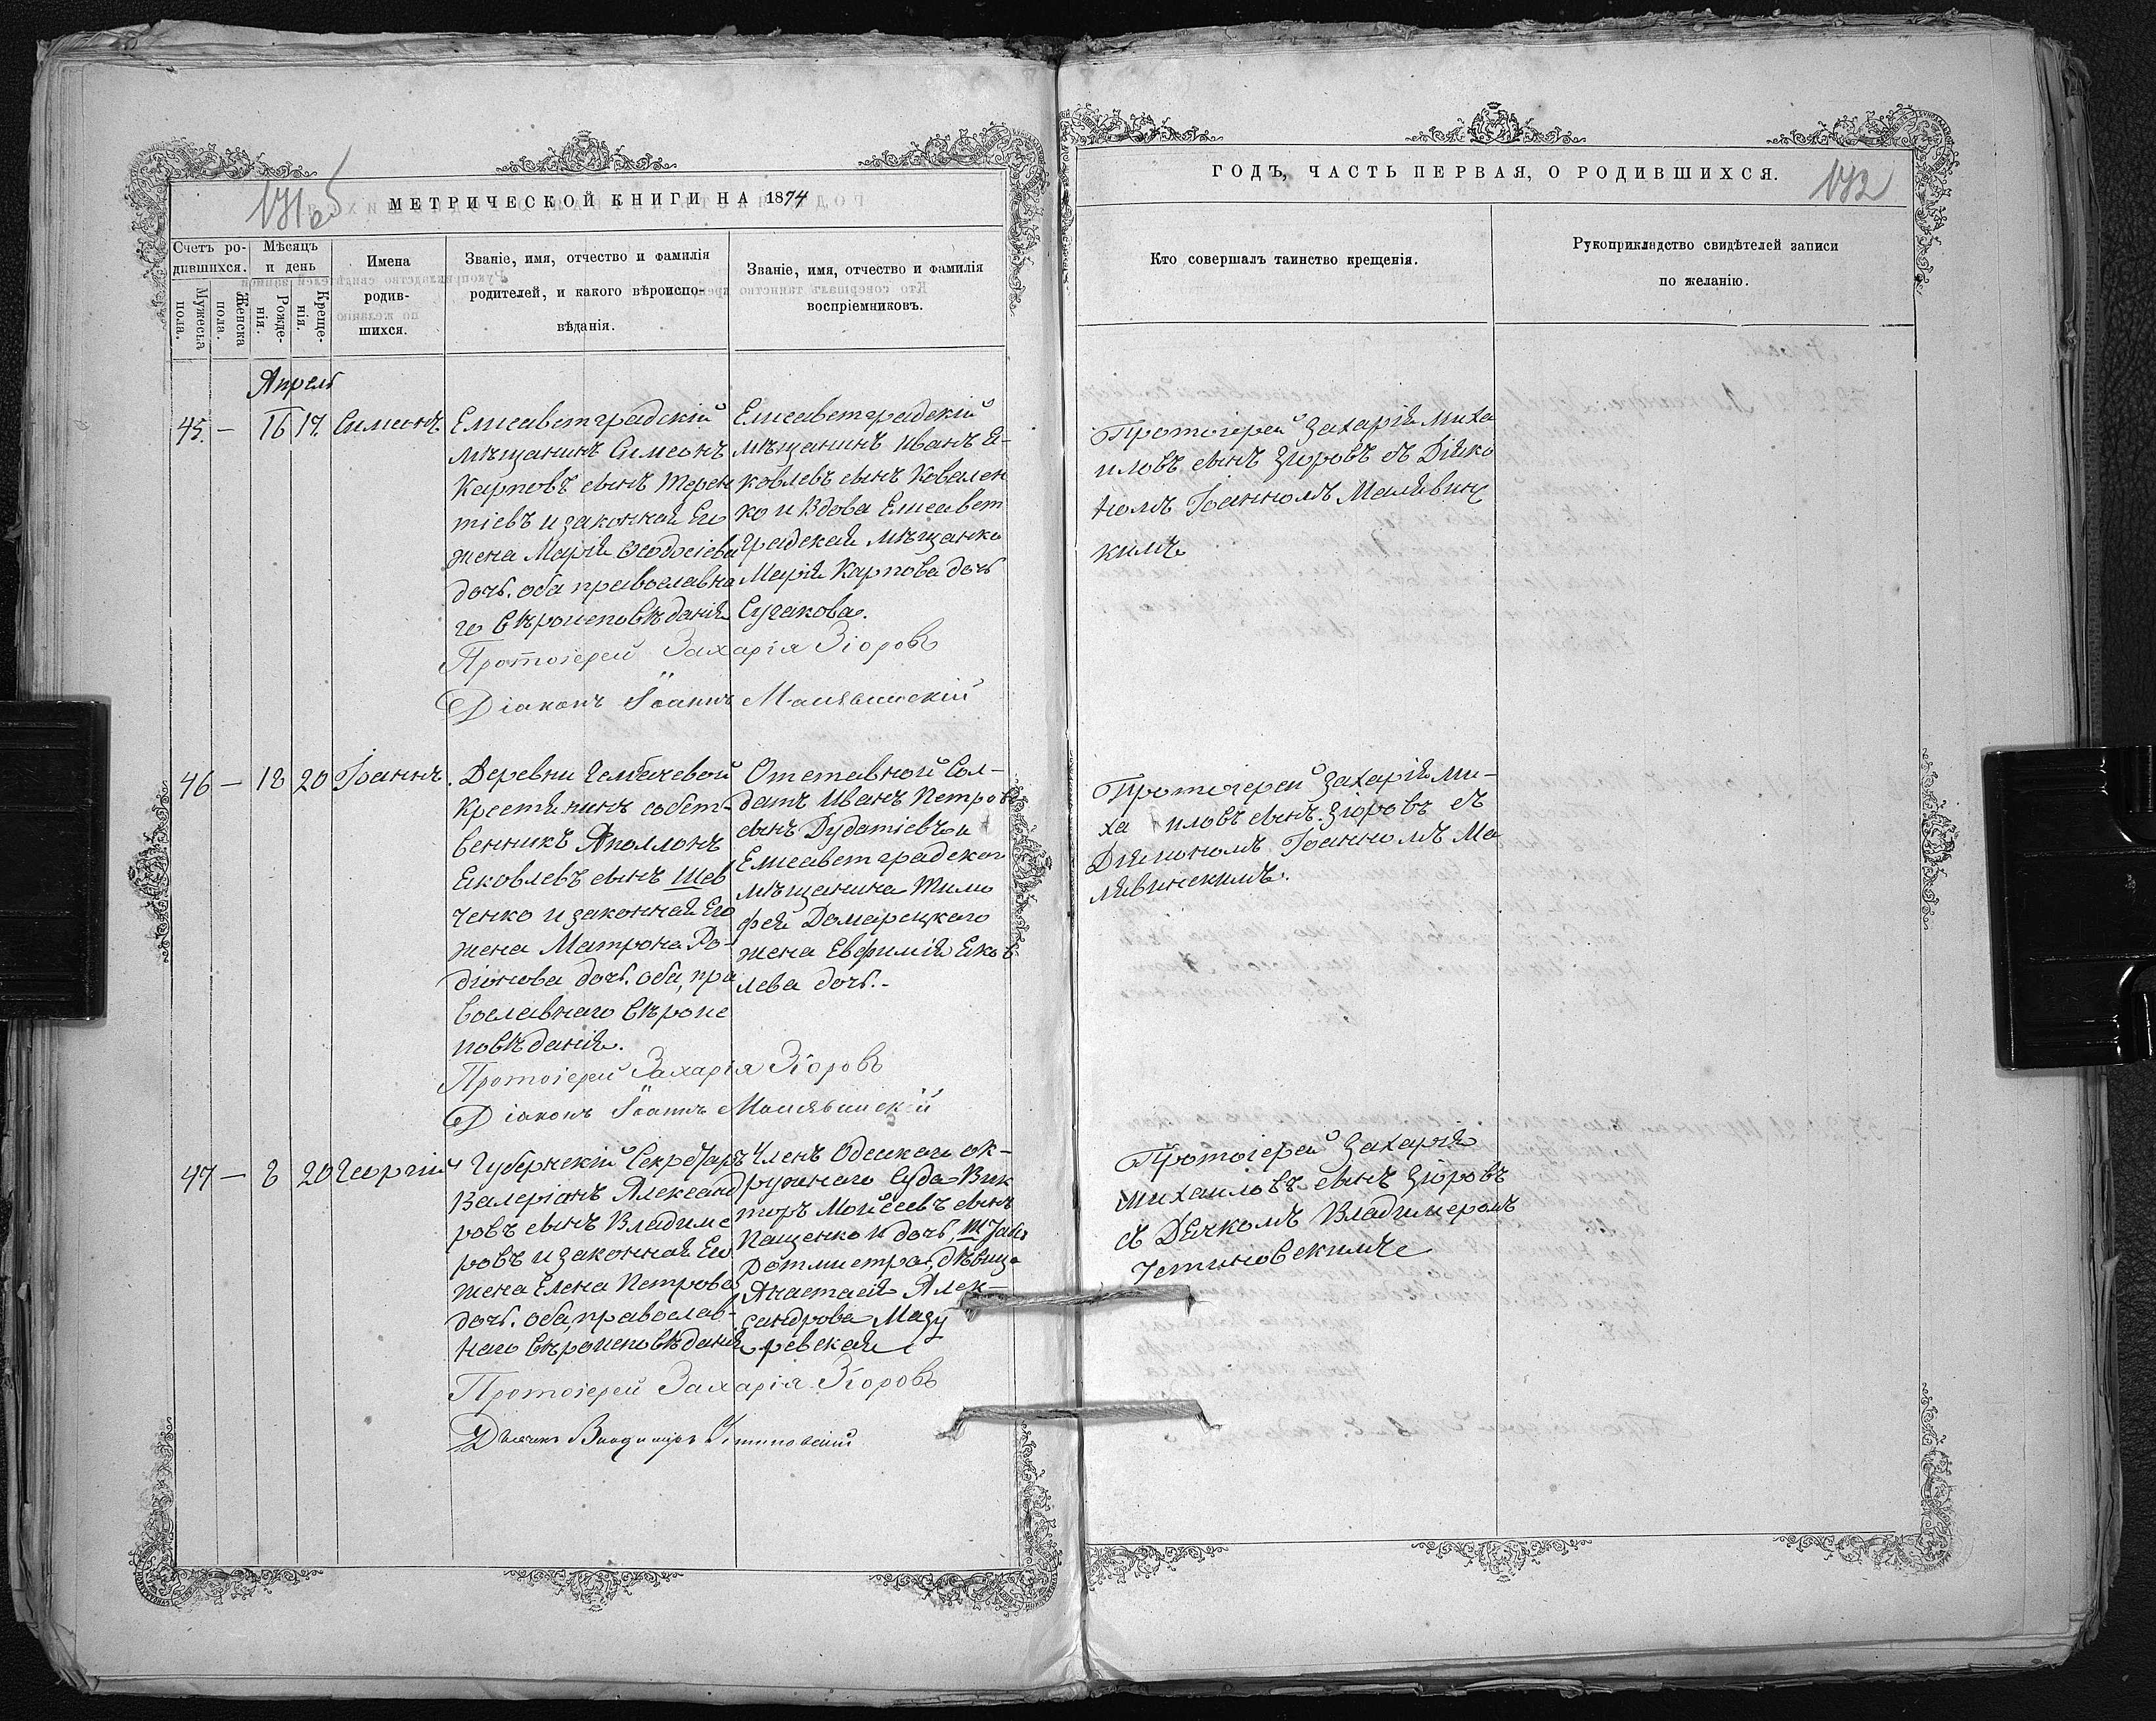 171 об
МЕТРИЧЕСКОЙ КНИГИ НА 1874
Счетъ ро-
дившихся.
Мужеска
пола.
Женска
пола.
Мѣсяцъ
и день
Рожде-
нія.
Креще-
нія.
Имена
родив-
шихся.
Званіе, имя, отчество и фамилія
родителей, и какого вѣроиспо-
вѣданія.
Званіе, имя, отчество и фамилія
воспріемниковъ.
Апрель
45. — 16 17. Симеонъ
Елисаветградскій
мѣщанинъ Симеонъ
Карповъ сынъ Терен
тіевъ и законная Его
жена Марія Ѳеодосіева
дочь. оба православна
го вѣроисповѣданія
Елисаветградскій
мѣщанинъ Иванъ Я-
ковлевъ сынъ Ковален
ко и Вдова Елисавет
градская мѣщанка
Марія Карпова дочь
Сугакова.
Протоіерей Захарія Зіоровъ
Діаконъ Іоаннъ Малявинскій
46 — 18 20 Іоаннъ.
Деревни Лелбачевой
Крестянинъ собст-
венникъ Аполлонъ
Яковлевъ сынъ Шев
ченко и законная Его
жена Матрона Ро-
діонова дочь. оба, пра
вославнаго вѣроис
повѣданія.
Отставной Сол-
датъ Иванъ Петровъ
сынъ Дубатіевъ и
Елисаветградскаго
мѣщанина Тимо
фея Домарецкаго
жена Евфимія Яков
лева дочь. -
Протоіерей Захарія Зіоровъ
Діаконъ Іоаннъ Малявинскій
47 — 8 20 Георгій
Губернскій Секретаръ
Валеріанъ Александ
ровъ сынъ Владиме
ровъ и законная Его
жена Елена Петрова
дочь. оба, православ-
наго вѣроисповѣданія
Членъ Одескаго ок-
ружнаго Суда Вик
торъ Мойсеевъ сынъ
Пащенко и дочь, Штабъ
Ротмистра, дѣвица
Анастасія Алек-
сандрова Мазу
ревская
Протоіерей Захарія Зіоровъ
Дьячекъ Владимиръ Устиновскій
ГОДЪ, ЧАСТЬ ПЕРВАЯ, О РОДИВШИХСЯ.
172
Кто совершалъ таинство крещенія.
Рукоприкладство свидѣтелей записи
по желанію.
Протоіерей Захарія Миха
иловъ сынъ Зіоровъ съ Діяко
номъ Іоанномъ Малявинс
кимъ
Протоіерей Захарія Ми-
ха иловъ сынъ. Зіоровъ съ
Діякономъ Іоанномъ Ма
лявинскимъ.
Протоіерей Захарія
Михаиловъ сынъ Зіоровъ
съ Дячкомъ Владимеромъ
Устиновскимъ